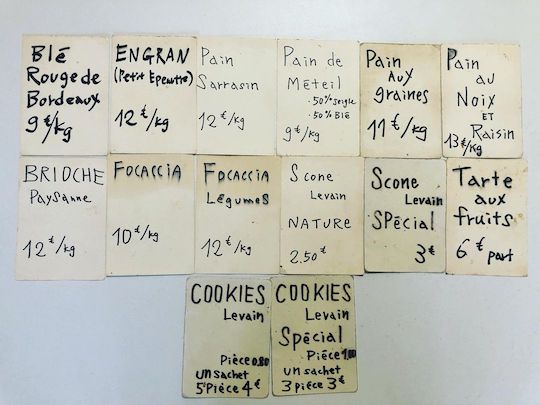 Blé
Rouge de
Bordeaux
9€/kg
ENGRAN
(Petit Epeautre)
12€/kg
Pain
Sarrasin
12€/kg
Pain de
Méteil
·50% seigle
·50% Blé
9€/kg
Pain
Aux
graines
11€/kg
Pain
au
Noix
ET
Raisin
13€/kg
BRIOCHE
Paysanne
12€/kg
FOCACCIA
10€/kg
FOCACCIA
Légumes
12€/kg
Scone
Levain
NATURE
2.50€
Scone
Levain
SPécial
3€
Tarte
aux
fruits
6€ part
COOKIES
Levain
Pièce 0.80
un sachet
5 Pièce 4€
COOKIES
Levain
Spécial
Pièce 1.00
un sachet
3 pièce 3€